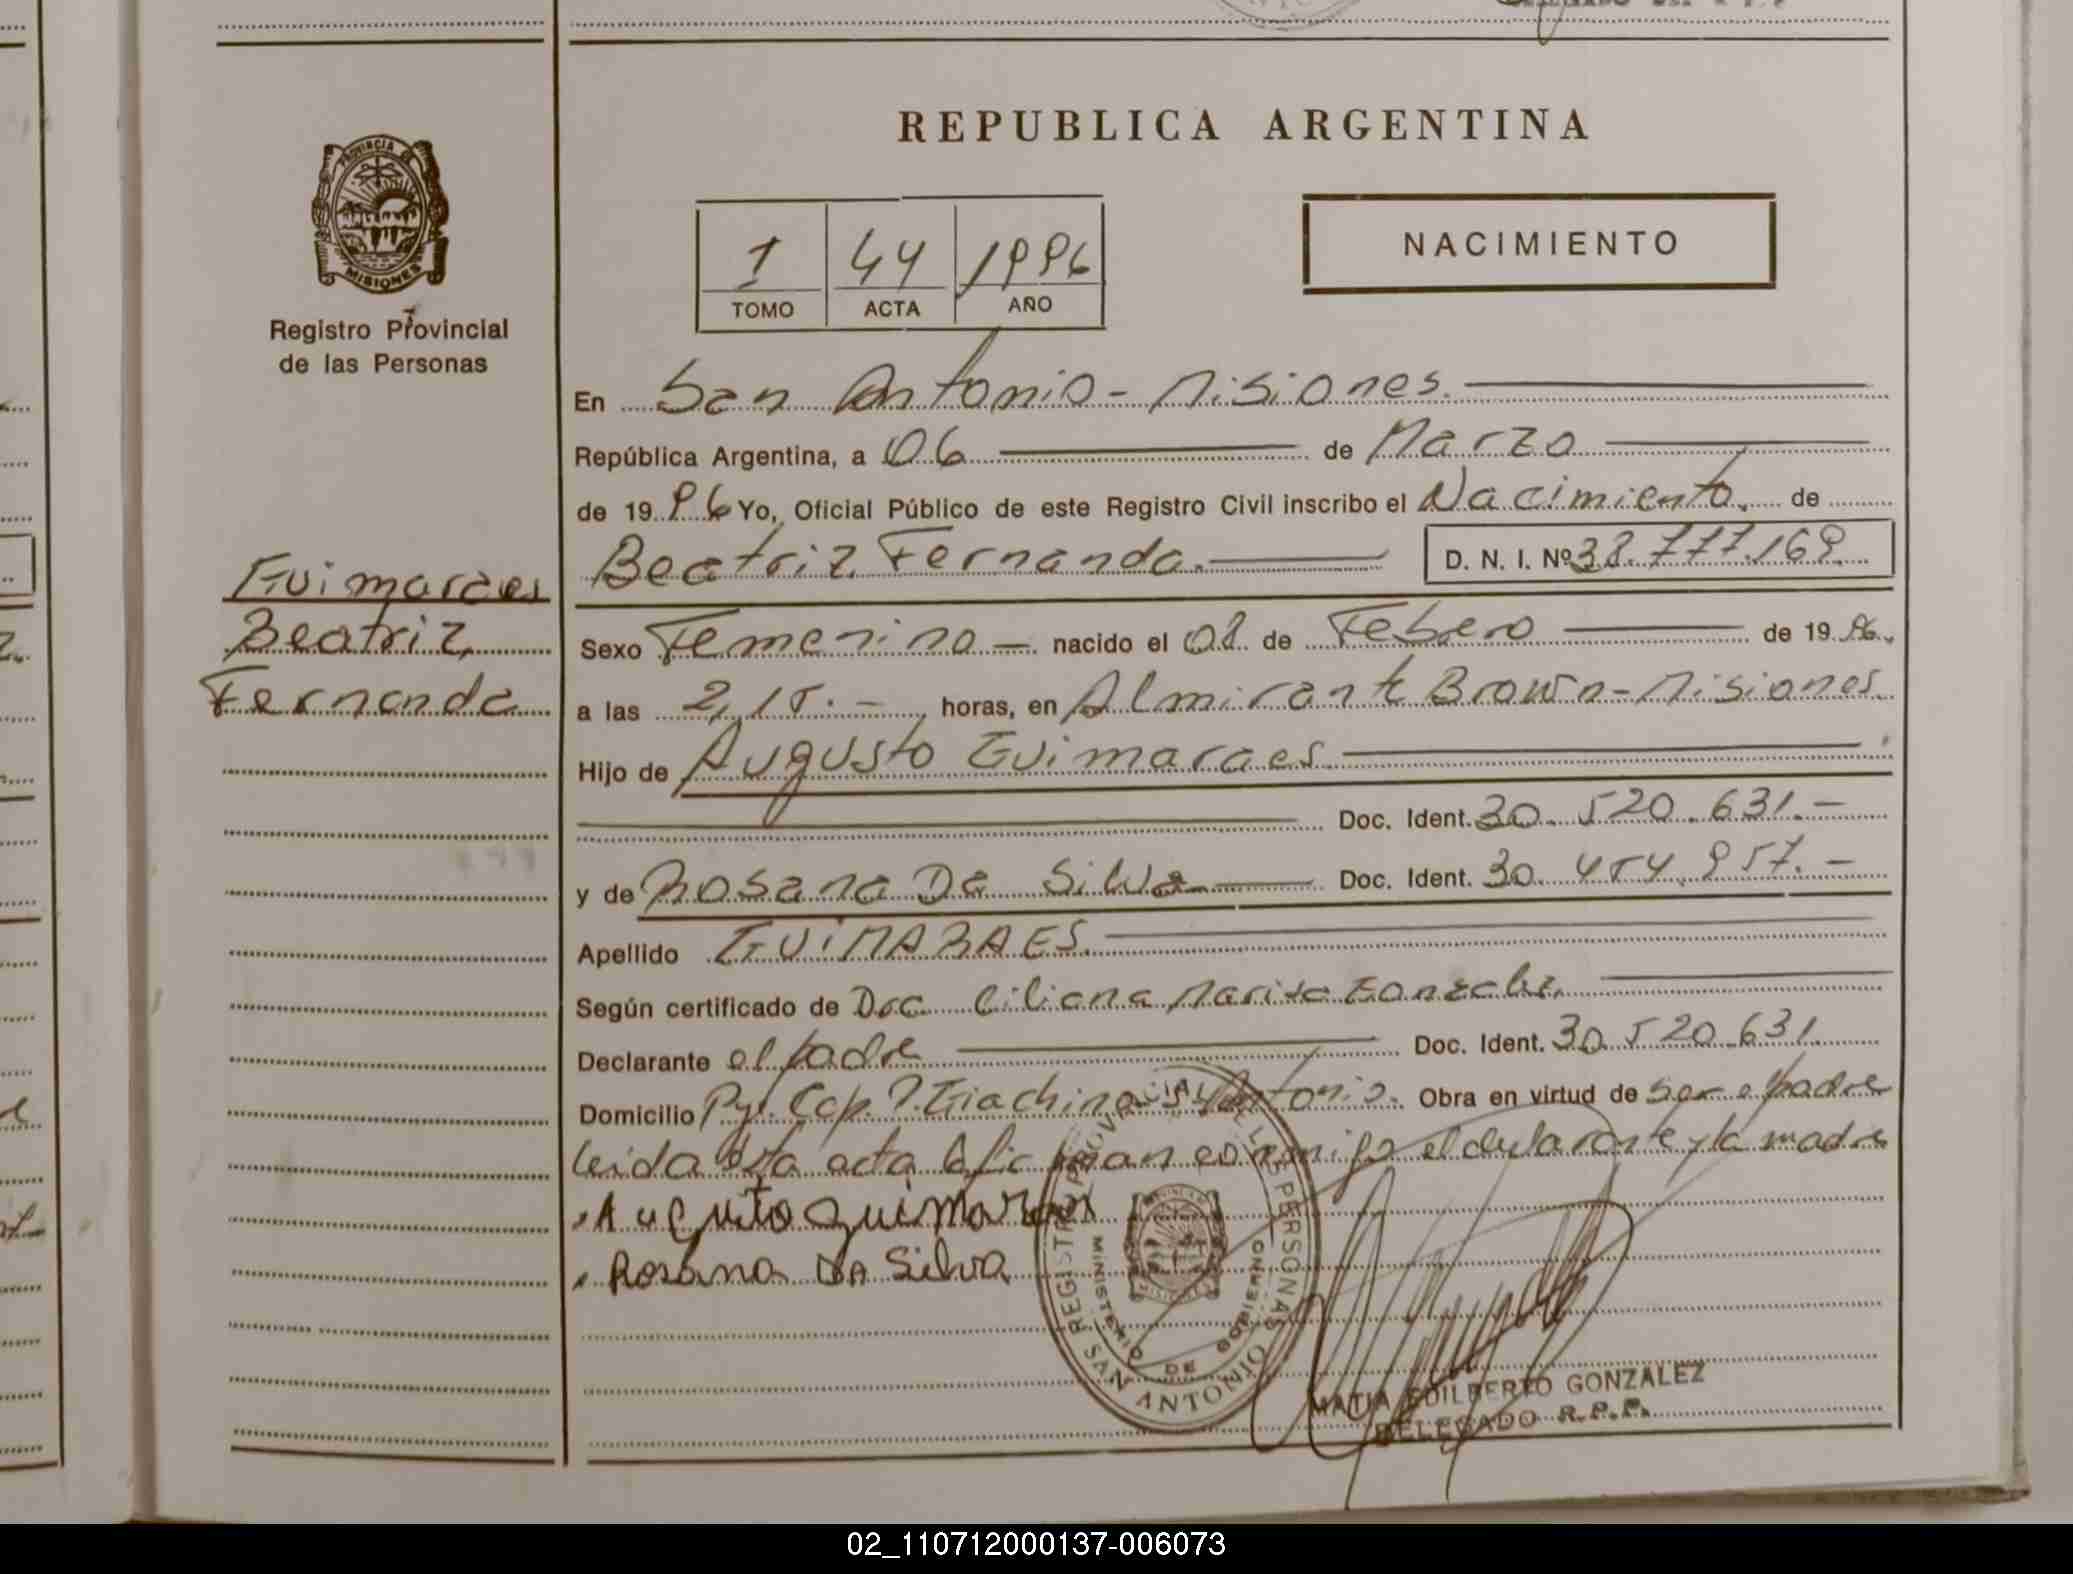 REPUBLICA ARGENTINA
PROVINCIA DE
MISIONES
Registro Provincial
de las Personas
1 44 1996
TOMO ACTA AÑO
NACIMIENTO
Guimaraes
Beatriz
Fernanda
En San Antonio - Misiones.
República Argentina, a 06 de Marzo
de 1996 Yo, Oficial Público de este Registro Civil inscribo el Nacimiento. de
Beatriz Fernanda. D. N. I. Nº 38.777.169.
Sexo Femenino - nacido el 08 de Febrero de 1996.
a las 2,15. - horas, en Almirante Brown - Misiones.
Hijo de Augusto Guimaraes
Doc. Ident. 30.520.631.-
y de Rosana Da Silva Doc. Ident. 30.454.957.-
Apellido GUIMARAES.
Según certificado de Dra. Liliana Marisa Gonzalez.
Declarante el padre Doc. Ident. 30.520.631.
Domicilio Pje. Cap. P. Giachino S. Antonio. Obra en virtud de ser el padre
leida esta acta la firman conmigo el declarante y la madre
Augusto guimaraes
Rosana DA Silva
REGISTRO PROVINCIAL DE LAS PERSONAS
MINISTERIO DE GOBIERNO
SAN ANTONIO
MATIA EDILBERTO GONZALEZ
DELEGADO R.P.P.
02_110712000137-006073